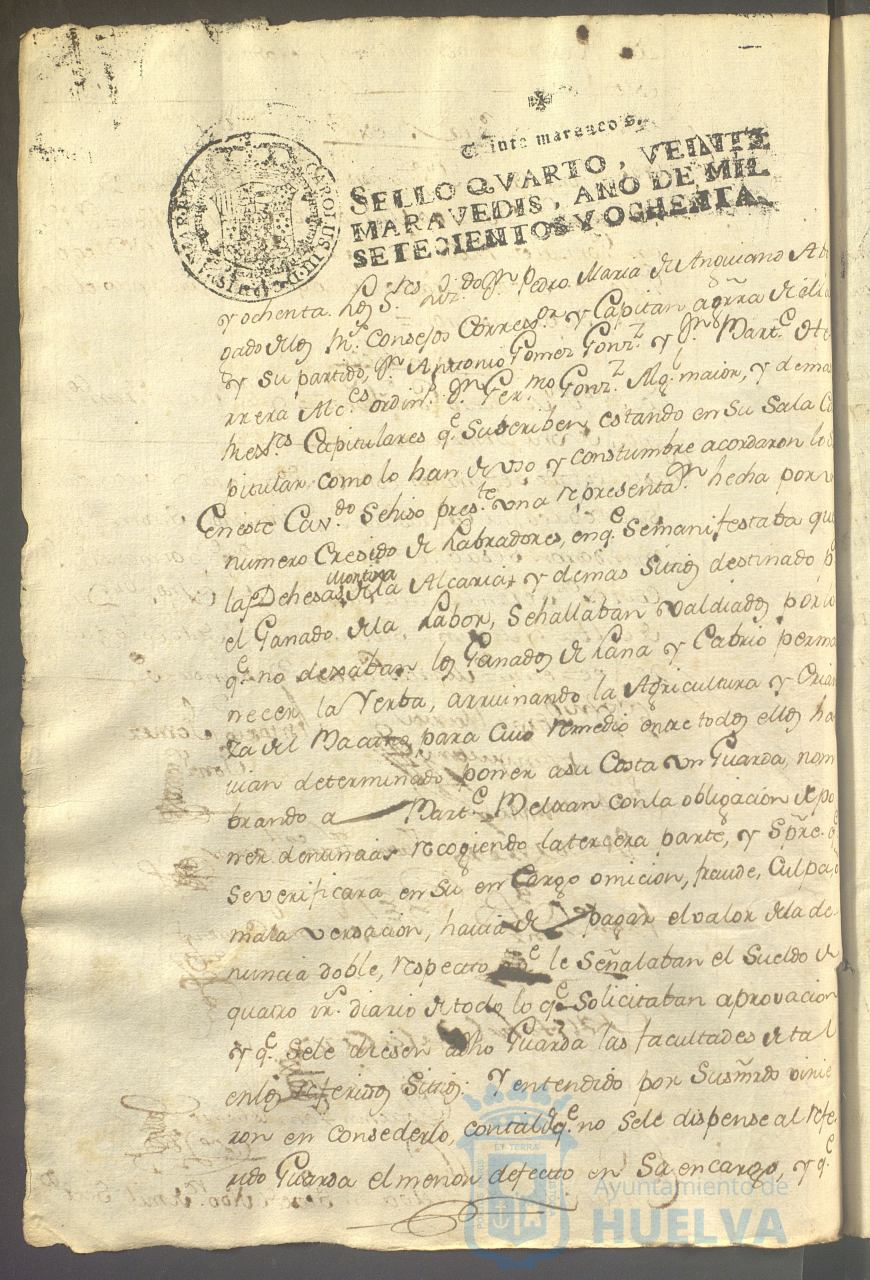 Veinte maravedis.
SELLO QVARTO, VEINTE
MARAVEDIS, AÑO DE MIL
SETECIENTOS Y OCHENTA.
CAROLUS III D G HISPANIAR REX
y ochenta. los S.res Liz.do Dn Pedro Maria de Anguiano Abo
gado delos Rs. Consejos Corregor. y Capitan a grra de ella
y su partido, Dn Antonio Gomez Gonz.z y Dn Mart.e He
rrera Alc.es ordin.s Dn Ger.mo Gonz.z Alg.l maior, y demas
Capitulares q.e Subscriben, estando en Su Sala Ca
pitular como lo han de uso y constumbre acordaron lo
En este Cav.do Se hiso pres.te una representa.on hecha por u
numero Cresido de Labradores, en q.e Se manifestaba que
las Dehesas dela Alcaria, y demas Sitios destinado p
el Ganado dela Labor, Se hallaban valdiados por lo
q.e no dexaban los Ganados de Lana y Cabrio perma
necer la Yerba, arruinando la Agricultura y Crian
za del para Cuio remedio entre todos ellos ha
vian determinado poner a su Costa un Guarda, nom
brando a Mart.e Meltran con la obligacion de po
ner denuncias recogiendo la tercera parte, y Spre. q.e
Se verificara en Su encargo omicion, fraude, Culpa, o
mala versacion, havia de pagar el valor dela de
nuncia doble, respecto a q.e le Señalaban el Sueldo de
quatro rr.s diario de todo lo q.e Solicitaban aprovacion
y q.e Sele diesen a dho Guarda las facultades de tal
en los referidos Sitios: Y entendido por Sus mrds vinie
ron en consederlo, con tal de q.e no Sele dispense al refe
rido Guarda el menor defecto en Su encargo, y q.e
Ayuntamiento de
HUELVA